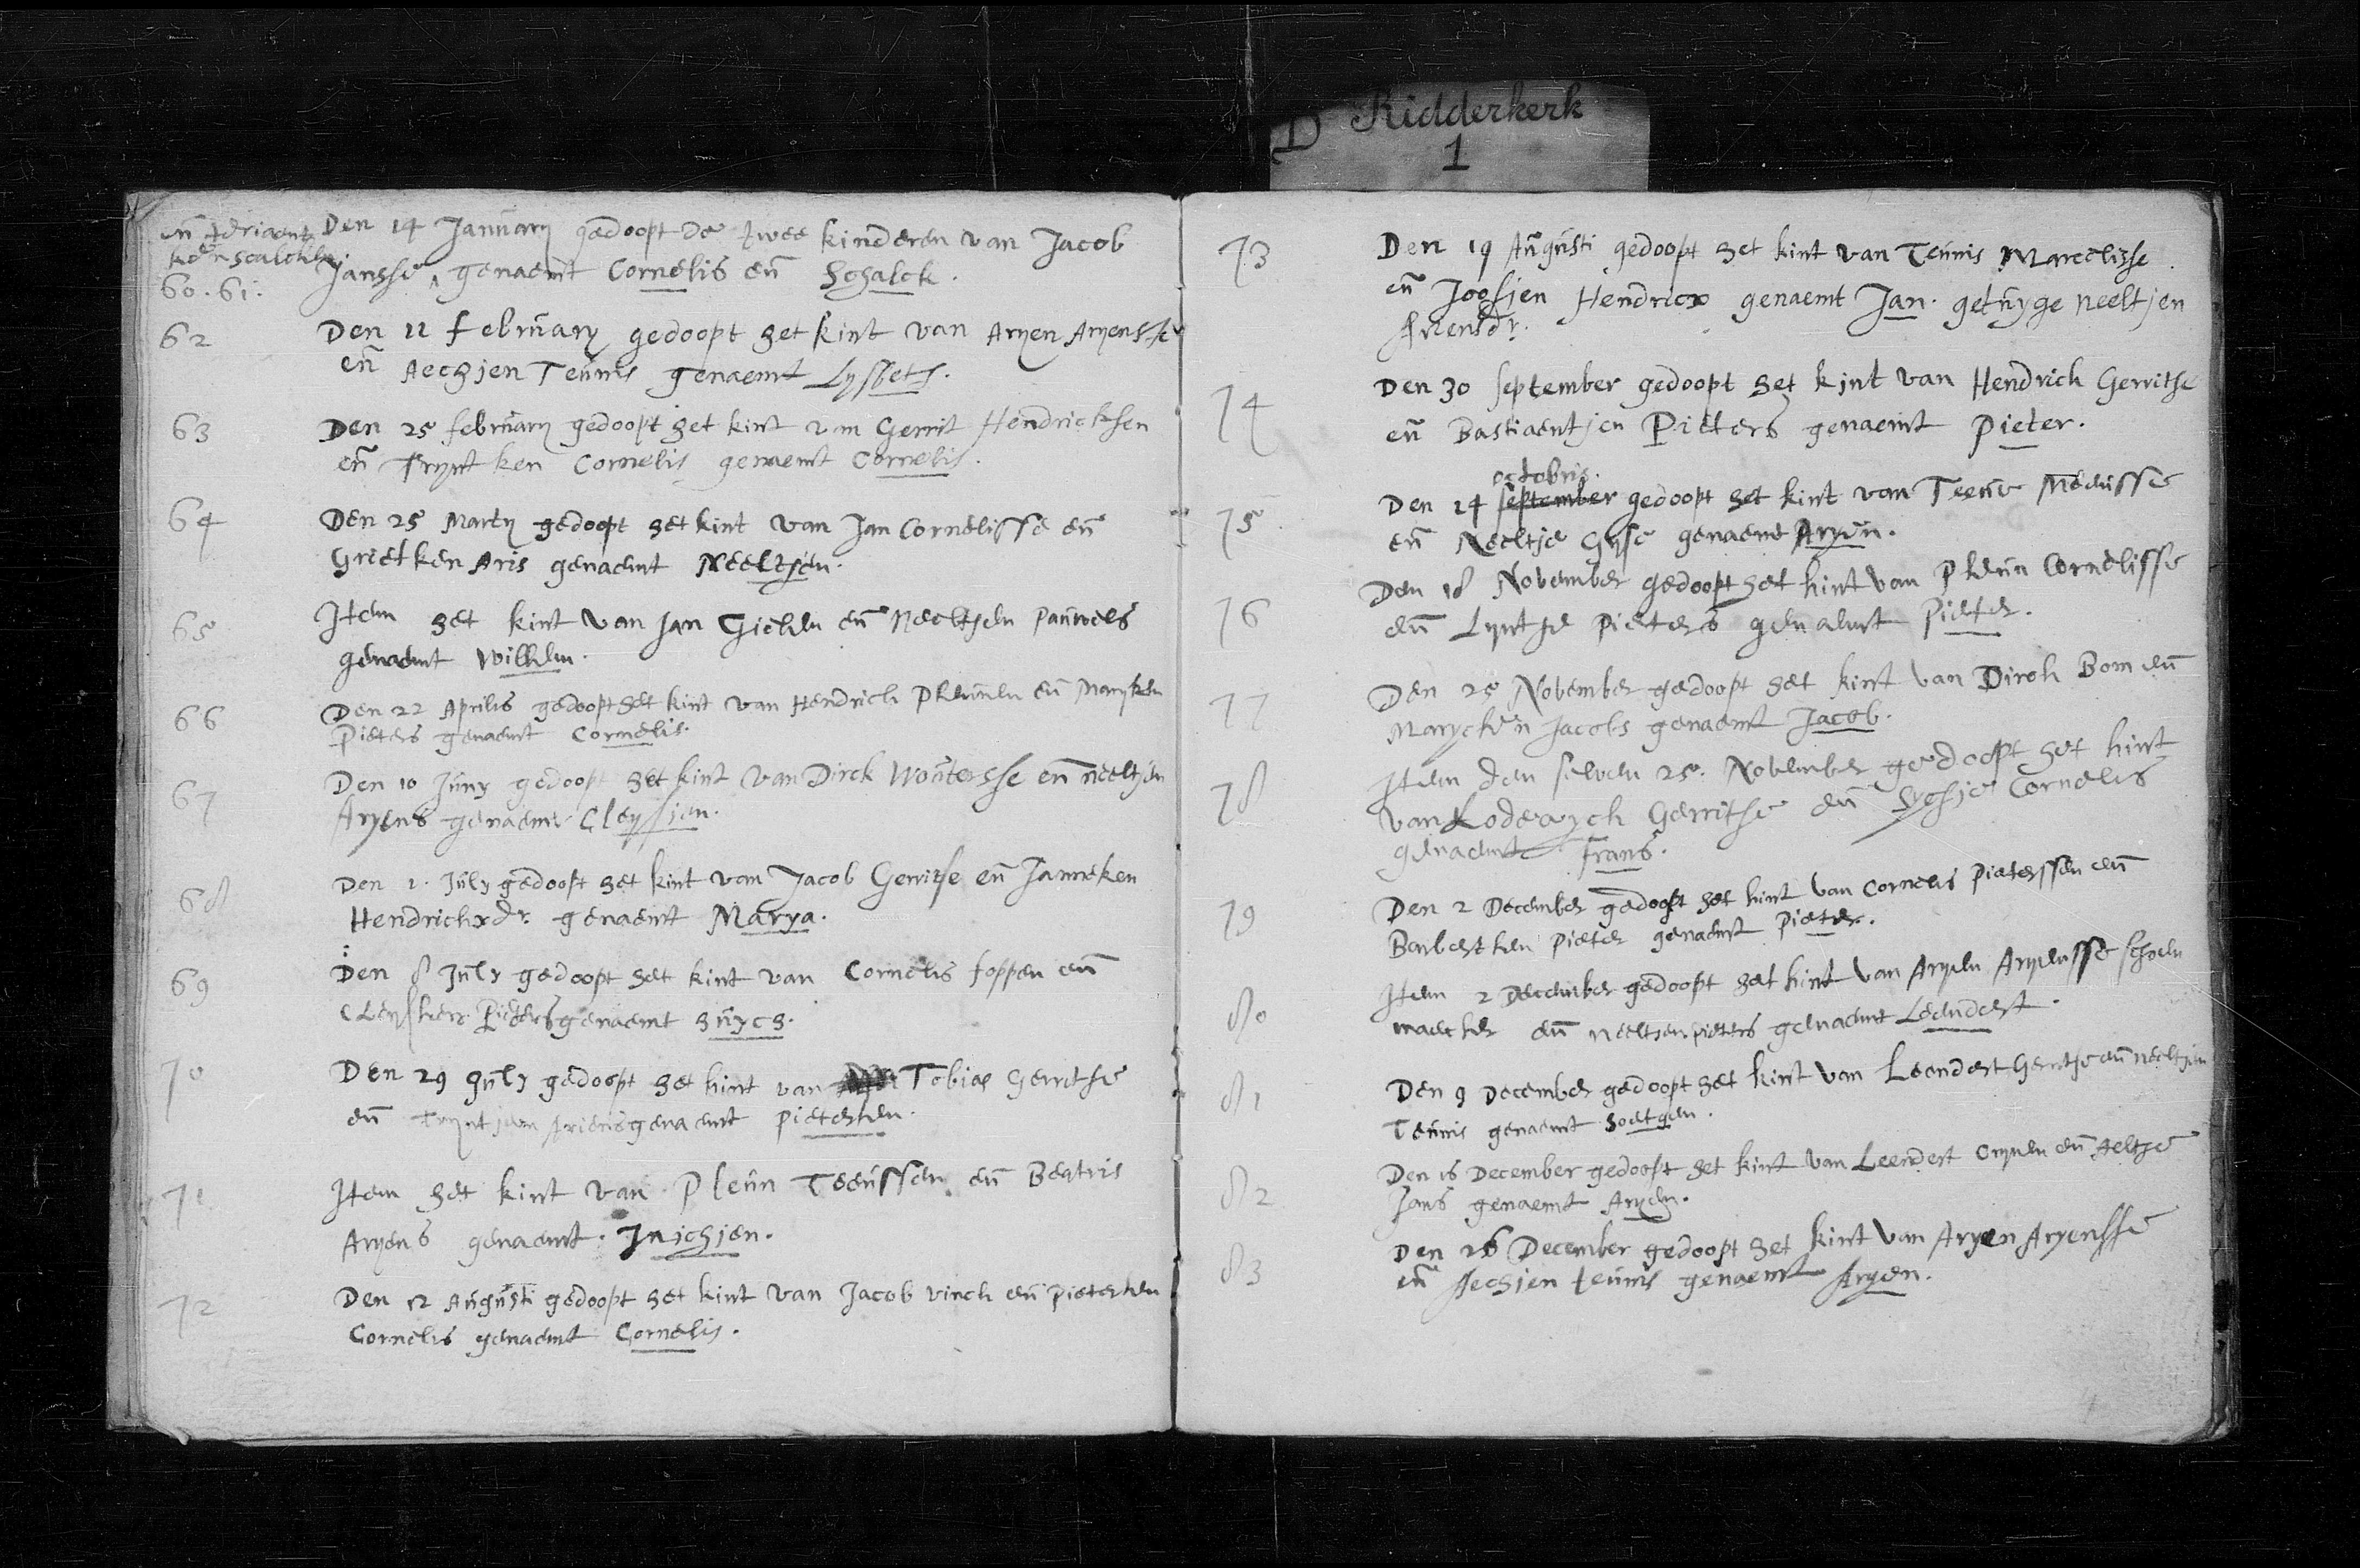 D Ridderkerk
1
en Adriaentken Schalcken
60. 61.
Den 14 January gedoopt de twee kinderen van Jacob
Jansse ^ genaemt Cornelis en Schalck.
62
Den 11 february gedoopt het kint van Aryen Aryensse
en Aechjen Teunis genaemt Lysbeth.
63
Den 25 february gedoopt het kint van Gerrit Hendricksen
en Tryntken Cornelis genaemt Cornelis.
64
Den 25 Marty gedoopt het kint van Jan Cornelisse en
Grietken Aris genaemt Neeltjen.
65
Item het kint van Jan Gielen en Neeltjen Pauwels
genaemt Willem.
66
Den 22 Aprilis gedoopt het kint van Hendrick Pleunen en Maryken
Pieters genaemt Cornelis.
67
Den 10 Juny gedoopt het kint van Dirck Woutersse en neeltjen
Aryens genaemt Cleysjen.
68
Den 1. July gedoopt het kint van Jacob Gerritse en Janneken
Hendrickxdr. genaemt Marya.
69
Den 8 July gedoopt het kint van Cornelis foppen en
Cleysken Pieters genaemt Huych.
70
Den 29 July gedoopt het kint van Tobias Gerritse
en Tryntjen Ariens genaemt Pieterken.
71
Item het kint van Pleun Teeussen en Beatris
Aryens genaemt. Inichjen.
72
Den 12 Augusti gedoopt het kint van Jacob vinck en Pieterken
Cornelis genaemt Cornelis.
73
Den 19 Augusti gedoopt het kint van Teunis Marcelisse
en Joosjen Hendricx genaemt Jan. getuyge neeltjen
Arensdr.
74
Den 30 september gedoopt het kint van Hendrick Gerritse
en Bastiaentjen Pieters genaemt Pieter.
octobris.
75
Den 14 september gedoopt het kint van Teeus
en Neeltje Gyse genaemt Aryen.
76
Den 18 November gedoopt het kint van Pleun Cornelisse
en Lyntje Pieters genaemt Pieter.
77
Den 25 November gedoopt het kint van Dirck Bom en
Marycken Jacobs genaemt Jacob.
78
Item den selven 25. November gedoopt het kint
van Lodewych Gerritse en Cornelis
genaemt Frans.
79
Den 2 December gedoopt het kint van Cornelis Pieterssen en
Barberken Pieter genaemt Pieter.
80
Item 2 December gedoopt het kint van Aryen Aryensse schoen
maecker en Neeltjen pieters genaemt Leendert.
81
Den 9 December gedoopt het kint van Leendert Gerritse en neeltjen
Teunis genaemt Soetgen.
82
Den 16 December gedoopt het kint van Leendert Crynen en Aeltje
Jans genaemt Aryen.
83
Den 26 December gedoopt het kint van Aryen Aryensse
en Aechjen teunis genaemt Aryen.